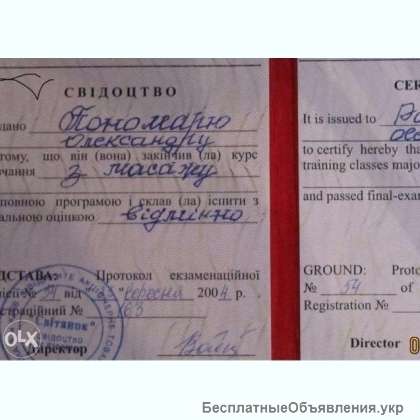 СВІДОЦТВО
дано Пономарю
Олександру
тому, що він (вона) закінчив (ла) курс
чання з масажу
повною програмою і склав (ла) іспити з
альною оцінкою відмінно
ДСТАВА: Протокол екзаменаційної
ісії № 54 від вересня 2004 р.
страційний №
Директор
СЕ
It is issued to
to certify hereby tha
training classes majo
and passed final-exa
GROUND: Proto
№ 54 of
Registration №
Director
OLX
БесплатныеОбъявления.укр